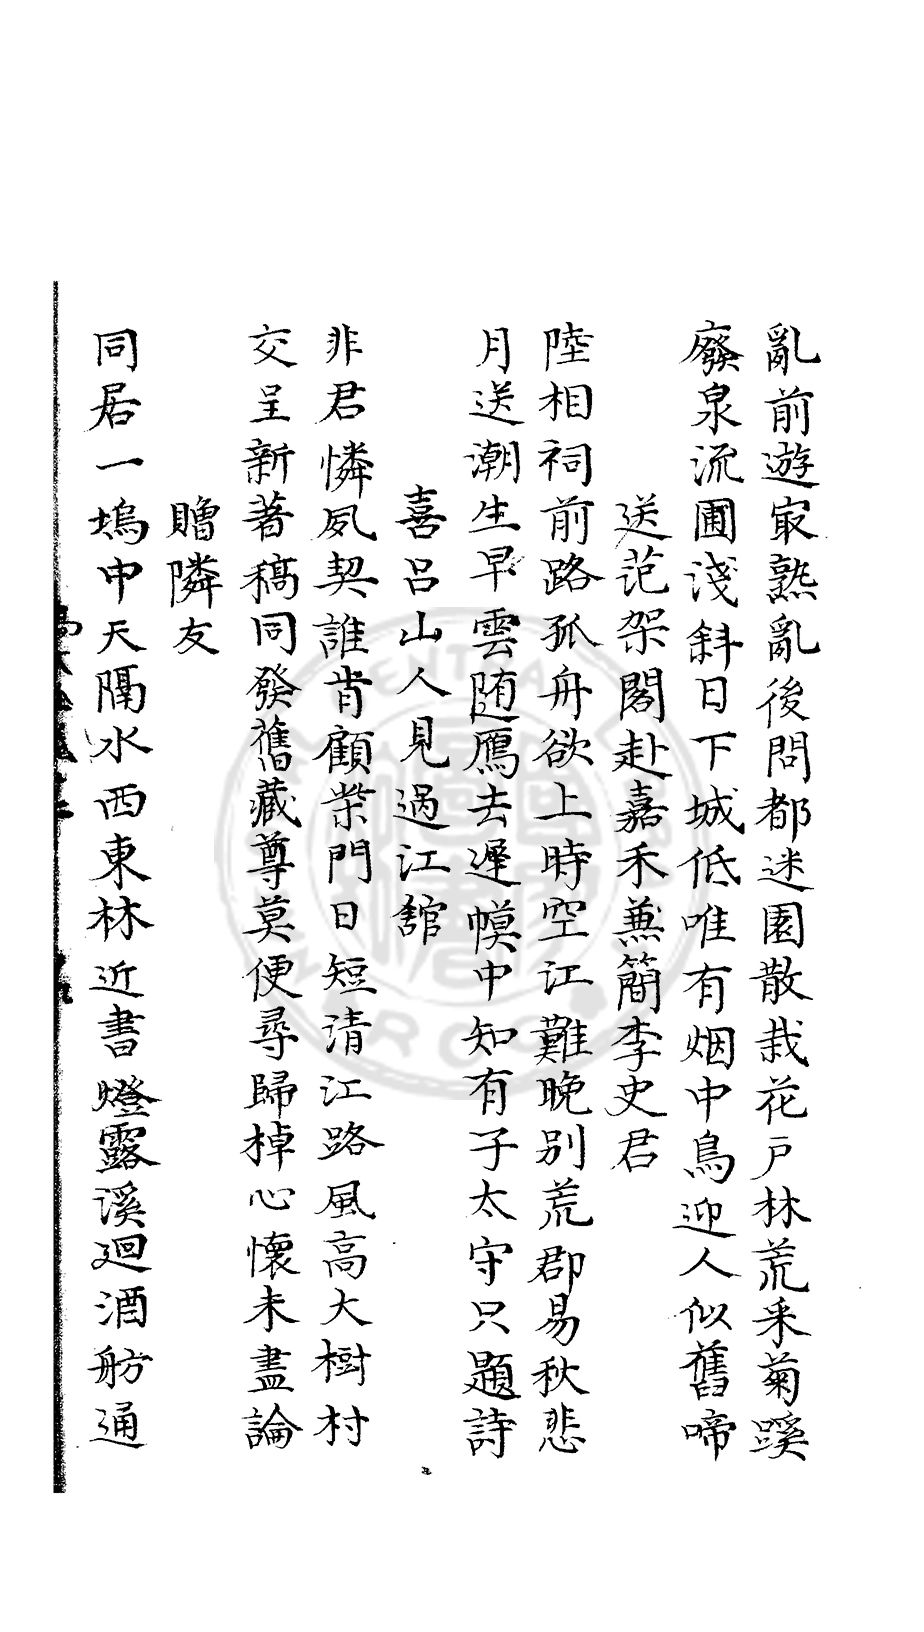 亂前遊㝡熟亂後問都迷園散栽花戶林荒采菊蹊
廢泉流圃淺斜日下城低唯有烟中鳥迎人似舊啼
送范架閣赴嘉禾兼簡李史君
陸相祠前路孤舟欲上時空江難晚別荒郡易秋悲
月送潮生早雲随鴈去遲幙中知有子太守只題詩
喜呂山人見過江舘
非君憐夙契誰肯顧柴門日短清江路風高大樹村
交呈新著稿同發舊藏尊莫便尋歸棹心懷未盡論
贈隣友
同居一塢中天隔水西東林近書燈露溪廻酒舫通